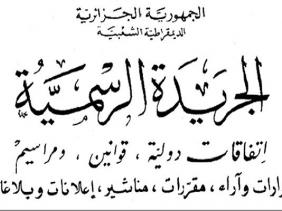 الجمهورية الجزائرية
الديمقراطية الشعبية
الجريدة الرسمية
اتفاقات دولية ، قوانين ، ومراسيم
رارات وآراء ، مقررات ، مناشير ، إعلانات وبلاغا